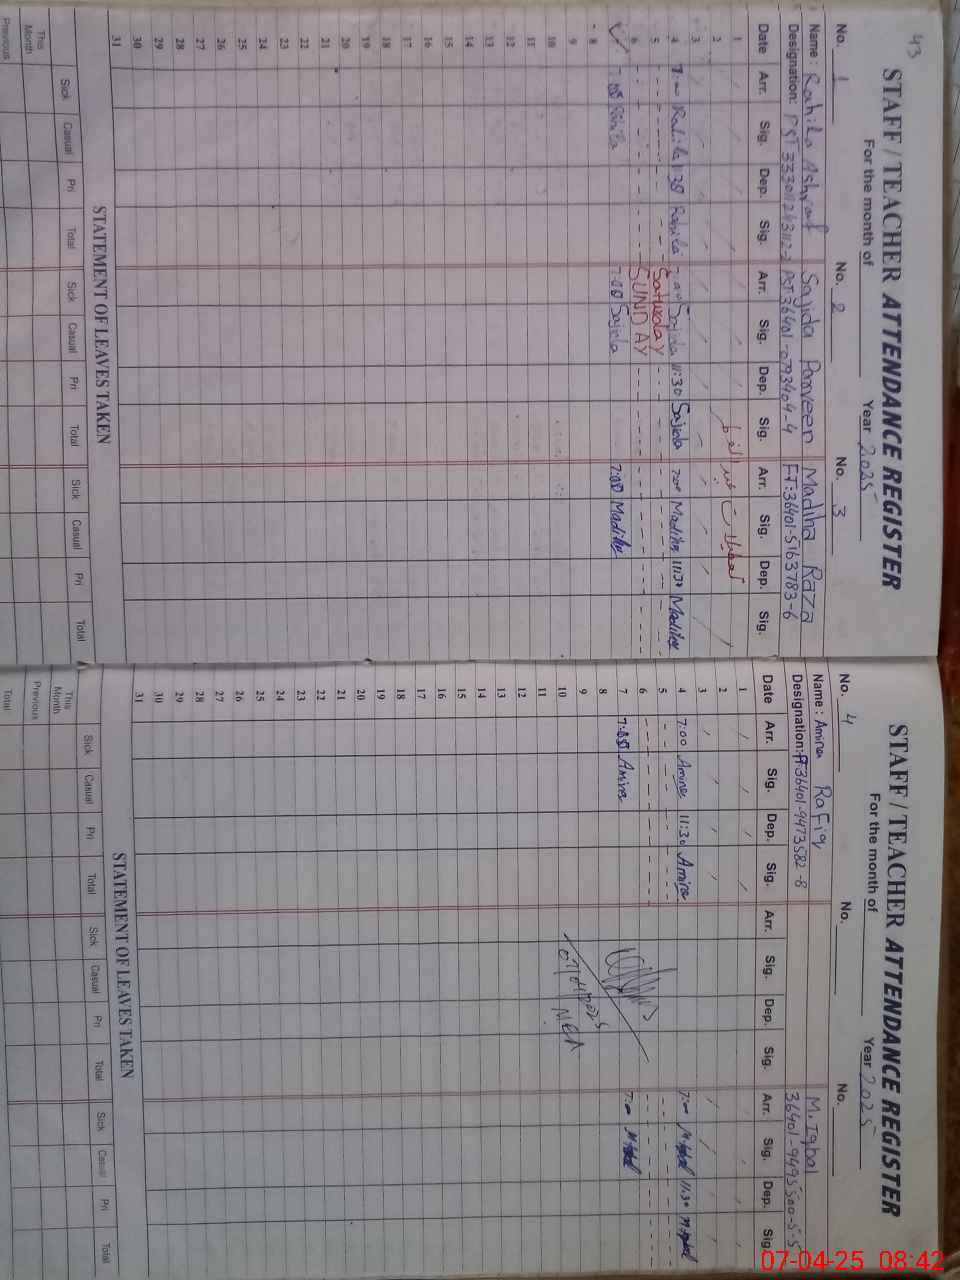 43
STAFF / TEACHER ATTENDANCE REGISTER
For the month of Year 2025
No. 1 No. 2 No. 3
Name : Rahila Ashraf Sajida Parveen Madiha Raza
Designation: PST 36401-0793404-4 FT:36401-5163783-6
Date Arr. Sig. Dep. Sig. Arr. Sig. Dep. Sig. Arr. Sig. Dep. Sig.
1
2
3
4 7:00 Rahila 11:30 Rahila 7:00 Sajida 11:30 Sajida 7:00 Madiha 11:30 Madiha
5 Saturday
6 SUNDAY
7:00 Rahila 7:00 Sajida 7:00 Madiha
8
9
10
11
12
13
14
15
16
17
18
19
20
21
22
23
24
25
26
27
28
29
30
31
STATEMENT OF LEAVES TAKEN
Sick Casual Pri Total Sick Casual Pri Total Sick Casual Pri Total
This Month
Previous
STAFF / TEACHER ATTENDANCE REGISTER
For the month of Year 2025
No. 4 No. No.
Name : Amina Rafiq M. Iqbal
Designation: FT:36401-9473582-8
Date Arr. Sig. Dep. Sig. Arr. Sig. Dep. Sig. Arr. Sig. Dep. Sig.
1
2
3
4 7:00 Amina 11:30 Amina 7:00 M. Iqbal 11:30 M. Iqbal
5
6
7 7:00 Amina 7:00 M. Iqbal
8
9
10
11
12
13
14
15
16
17
18
19
20
21
22
23
24
25
26
27
28
29
30
31
07/04/2025
MEA
STATEMENT OF LEAVES TAKEN
Sick Casual Pri Total Sick Casual Pri Total Sick Casual Pri Total
This Month
Previous
Total
07-04-25 08:42